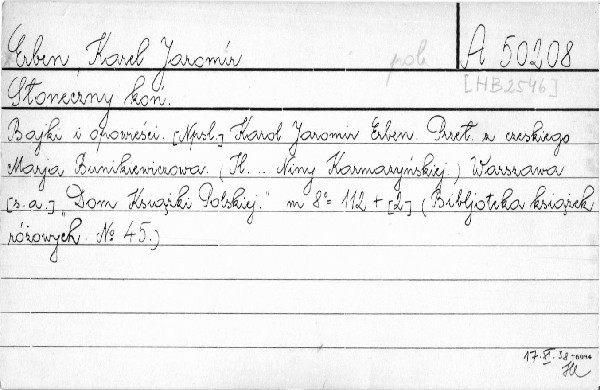 Erben, Karel Jaromír
pol.
A 50208
[HB2546]
Słoneczny koń.
Bajki i opowieści. [Npsl.] Karol Jaromir Erben. Przeł. z czeskiego
Marja Bunikiewiczowa. (Il. ... Niny Karmazyńskiej.) Warszawa
[s.a.] "Dom Książki Polskiej." m 8° 112 + [2] (Bibljoteka książek
różowych. No 45.)
17.X.38